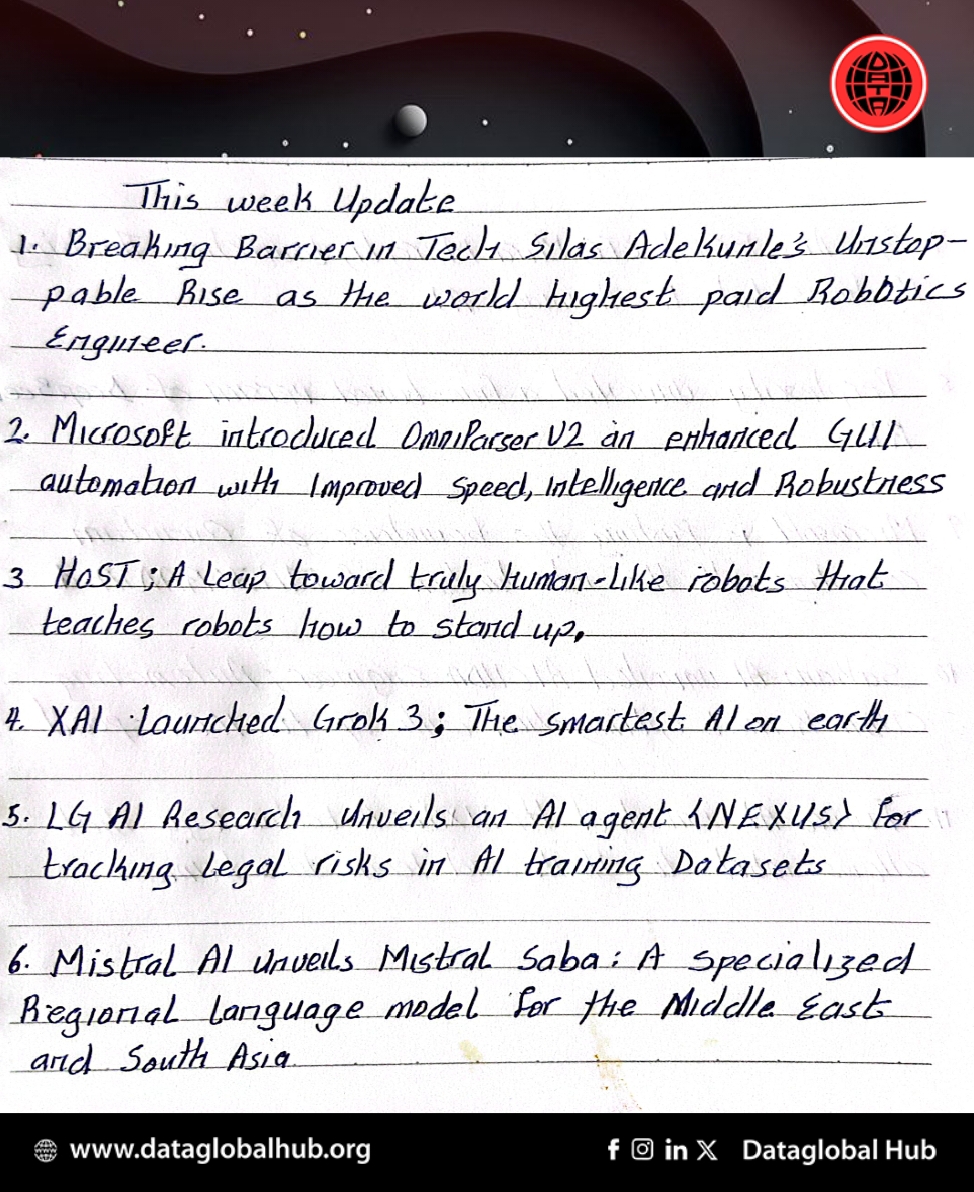 DATA
This week Update
1. Breaking Barrier in Tech Silas Adekunle's Unstop-
pable Rise as the world highest paid Robotics
Engineer.
2. Microsoft introduced OmniParser V2 an enhanced GUI
automation with Improved Speed, Intelligence and Robustness
3 HoST; A Leap toward truly human-like robots that
teaches robots how to stand up.
4. XAI Launched Grok 3; The smartest AI on earth
5. LG AI Research Unveils an AI agent {NEXUS} for
tracking Legal risks in AI training Datasets
6. Mistral AI unveils Mistral Saba: A specialized
Regional Language model for the Middle East
and South Asia
www.dataglobalhub.org
f in X Dataglobal Hub